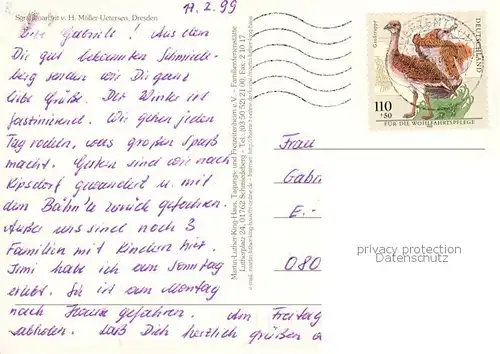 17.2.99
Sgraffitoarbeit v. H. Möller-Uetersen, Dresden
Liebe Gabriele! Aus dem
Dir gut bekannten Schmiede-
berg senden wir Dir ganz
liebe Grüße. Der Winter ist
faszinierend. Wir gehen jeden
Tag rodeln, was großen Spaß
macht. Gestern sind wir nach
Kipsdorf gewandert u. mit
dem Bähn'le zurück gefahren.
Außer uns sind noch 3
Familien mit Kindern hier.
habe ich am Sonntag
erlebt. Sie ist am Montag
nach Hause gefahren. Am Freitag
abholen. Laß Dich herzlich grüßen
Martin-Luther-King-Haus, Tagungs- und Freizeitenheim e.V. - Familienferienstätte
Lutherplatz 24, 01762 Schmiedeberg - Tel.: (03 50 52) 21 00, Fax: 2 10 17
Großtrappe
DEUTSCHLAND
110
+50
FÜR DIE WOHLFAHRTSPFLEGE
Frau
Gabri
E.-
080
privacy protection
Datenschutz